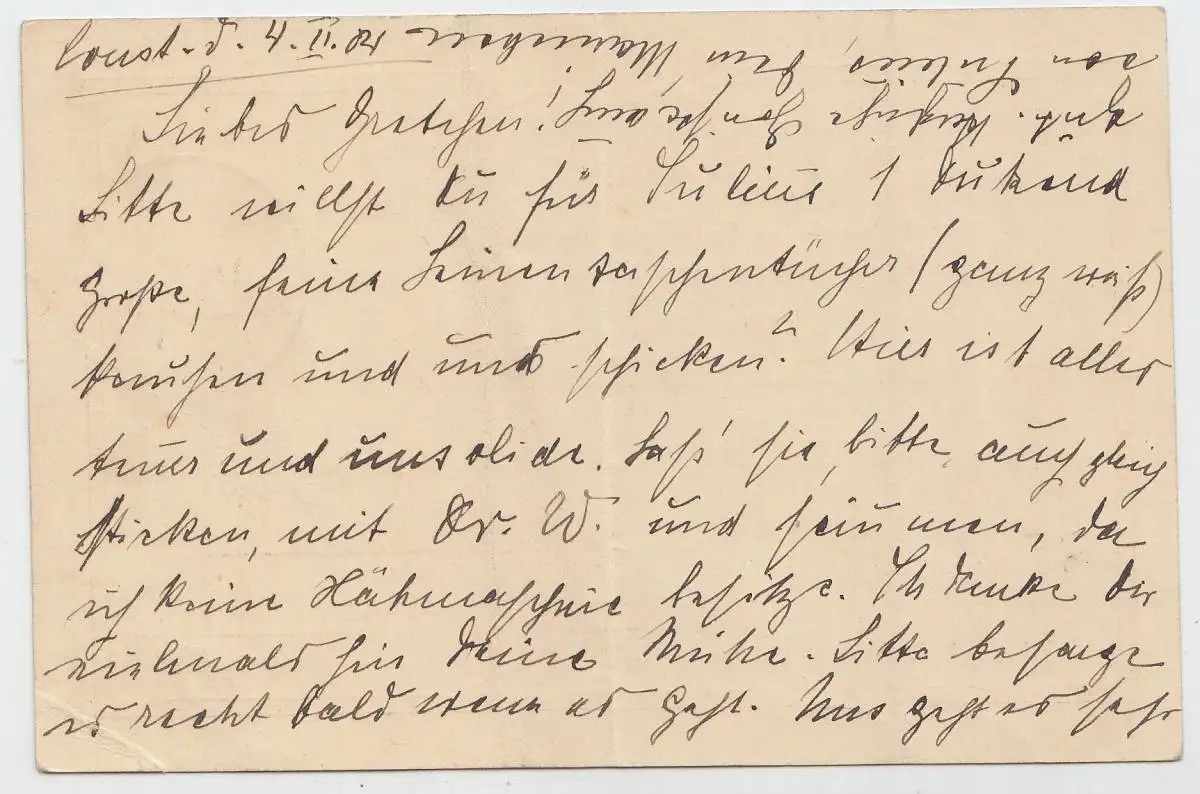 Const. d. 4. II. 
Liebes Gretchen!
Bitte willst Du für Julius 1 Dutzend
große, feine Leinentaschentücher (ganz weiß)
kaufen und uns schicken? Hier ist alles
teuer und unsolide. Laß' sie, bitte, auch gleich
sticken, mit Dr. W. und säumen, da
ich keine Nähmaschine besitze. Ich danke Dir
vielmals für Deine Mühe. Bitte besorge
es recht bald wenn es geht. Uns geht es sehr
gut. Herzliche
von Julius, dem